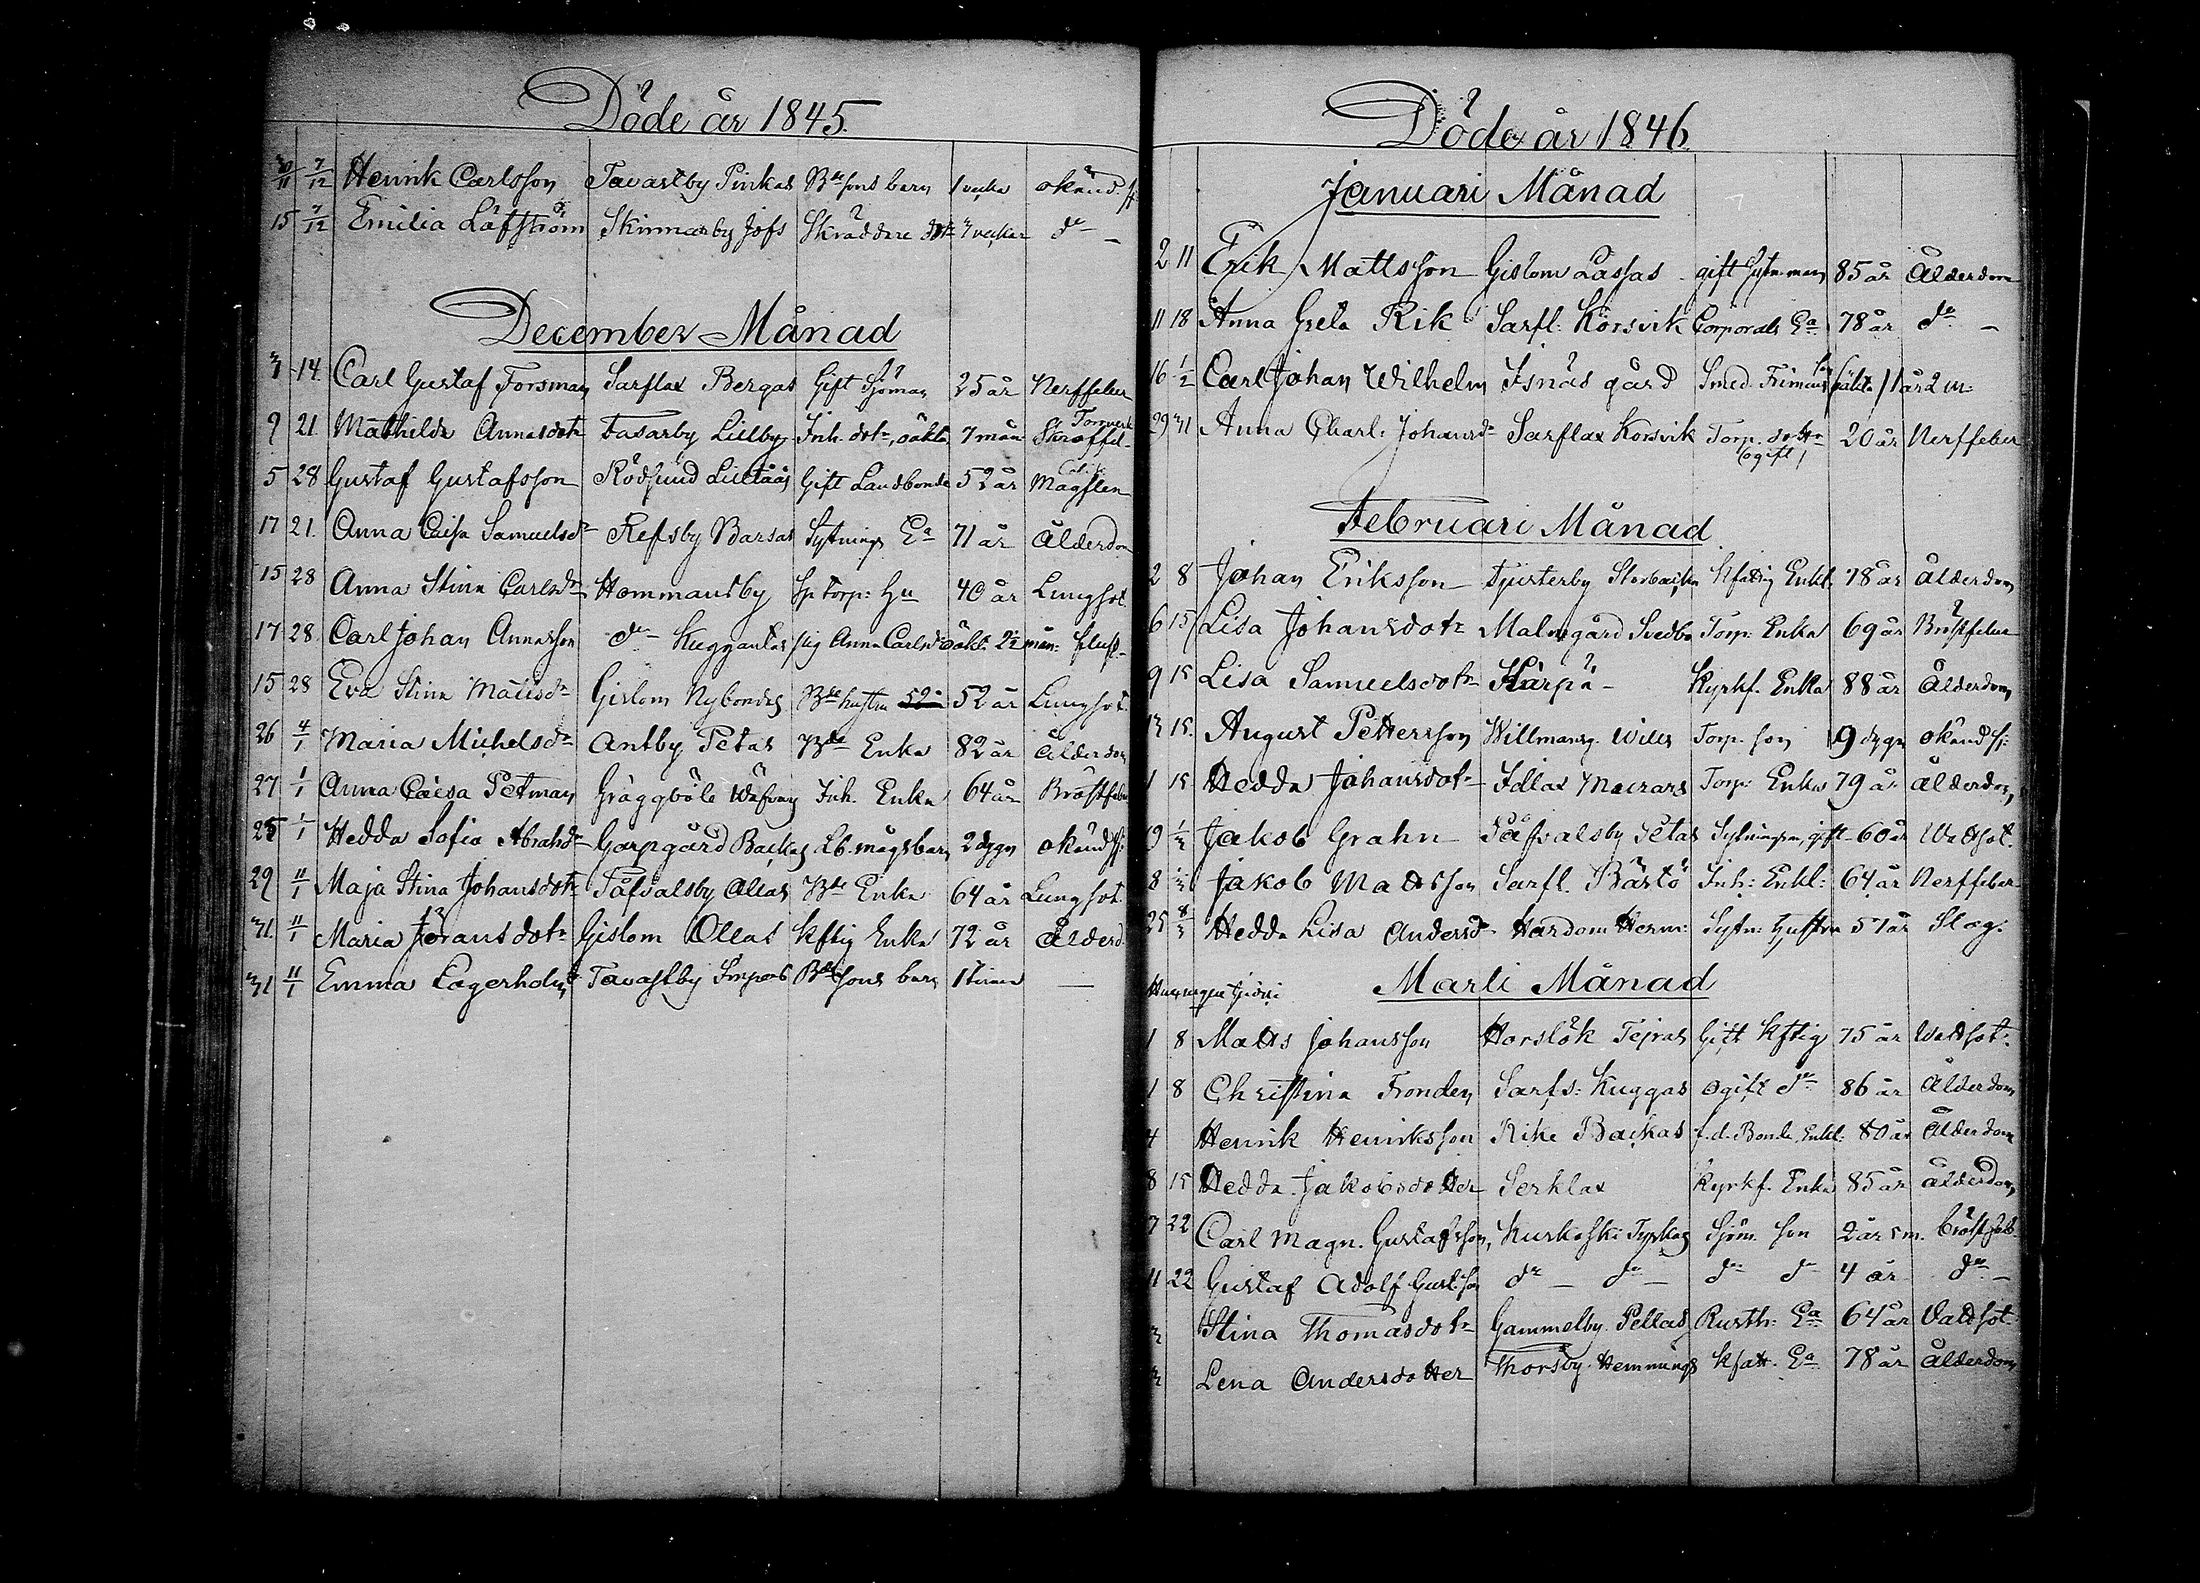 Döde år 1845.
30/11 7/12 Henrik Carlsson Tavastby Pinkas Bde sons barn 1 vecka okänd sj:
15 7/12 Emilia Löfström Skinnarby Jofs Skräddare dotr 3 veckor do –
December Månad
3 14. Carl Gustaf Forsman Sarflax Bergas Gift Sjöman 25 år Nerffeber
9 21. Mathilda Annasdotr Fasarby Lillby Inh. dotr, oäkta 7 mån Skroffel
5 28 Gustaf Gustafsson Rödsund Gift Landbonde 52 år
17 21. Anna Caisa Samuelsdr Refsby Barsas Sytnings Ea 71 år Ålderdom
15 28 Anna Stina Carlsdr Hommansby Sp torp: Hu 40 år Lungsot
17 28. Carl Johan Annasson do Kuggantas Anna Carlsdr oäkt. 2½ mån:
15 28 Eva Stina Matisdr Gislom Nybondas Bde hustru 52 år 52 år Lungsot.
26 4/1 Maria Michelsdr Antby Petas Bde Enka 82 år Ålderdom
27 1/1 Anna Caisa Petman Gräggböle Inh. Enka 64 år Bröstfeber
25 1/1 Hedda Sofia Abrahdr Garpgård Backas Lb. mågs barn 2 dygn okänd sj:
29 11/1 Maja Stina Johansdotr Tåfvalsby Ollas Bde Enka 64 år Lungsot.
31. 11/1 Maria Göransdotr Gislom Ollas kftig Enka 72 år Ålderd.
31 11/1 Emma Lagerholm Tavastby Bde sons barn 1 timme —
Döde år 1846
Januari Månad
2 11 Erik Mattsson Gislom Lassas gift Sytn. man 85 år Ålderdom
11 18 Anna Greta Rik Sarfl: Korsvik Corporals Ea 78 år do –
16 1/2 Carl Johan Wilhelm Isnäs gård Smed. 1 år 2 m:
29 31 Anna Charl: Johansdr Sarflax Korsvik Torp. dottr 20 år Nerffeber
ogift
Februari Månad
2 8 Johan Eriksson Tjusterby Storbacka Kfattig Enkl. 78 år Ålderdom
6 15 Lisa Johansdotr Malmgård Svedbo Torp: Enka 69 år Bröstfeber
9 15 Lisa Samuelsdotr Härpä – Kyrkf. Enka 88 år Ålderdom
13 15. August Pettersson Willmansg. Wills Torp. son 9 dygn okänd sj:
1 15 Hedda Johansdotr Idlax Macrars Torp: Enka 79 år Ålderdom
19 1/3 Jakob Grahn Tåfvalsby Petas Sytningsm, gift 60 år Wattsot.
8 1/3 Jakob Mattsson Sarfl. Bästö Inh: Enkl: 64 år Nerffeber
25 8/3 Hedda Lisa Andersdr Hardom Herm: Sytn: Hustru 57 år Slag.
Marti Månad
1 8 Matts Johansson Horslök Tejras Gift kftig 75 år Wattsot.
1 8 Christina Fronden Sarfs: Kuggas ogift do 86 år Ålderdom
4 Henrik Henriksson Rike Backas f.d. Bonde, Enkl: 80 år Ålderdom
8 15 Hedda Jakobsdotter Serklax Kyrkf. Enka 85 år Ålderdom
7 22 Carl Magn. Gustafsson, Kuskoski Tyskas Sjöm. son 2 år 5 m.
11 22 Gustaf Adolf Gustsson do – do – do do 4 år do –
3 Stina Thomasdotr Gammelby Pellas Rusth: Ea 64 år Vattsot.
3 Lena Andersdotter Thorsby Hemmings Kfatt. Ea 78 år Ålderdom